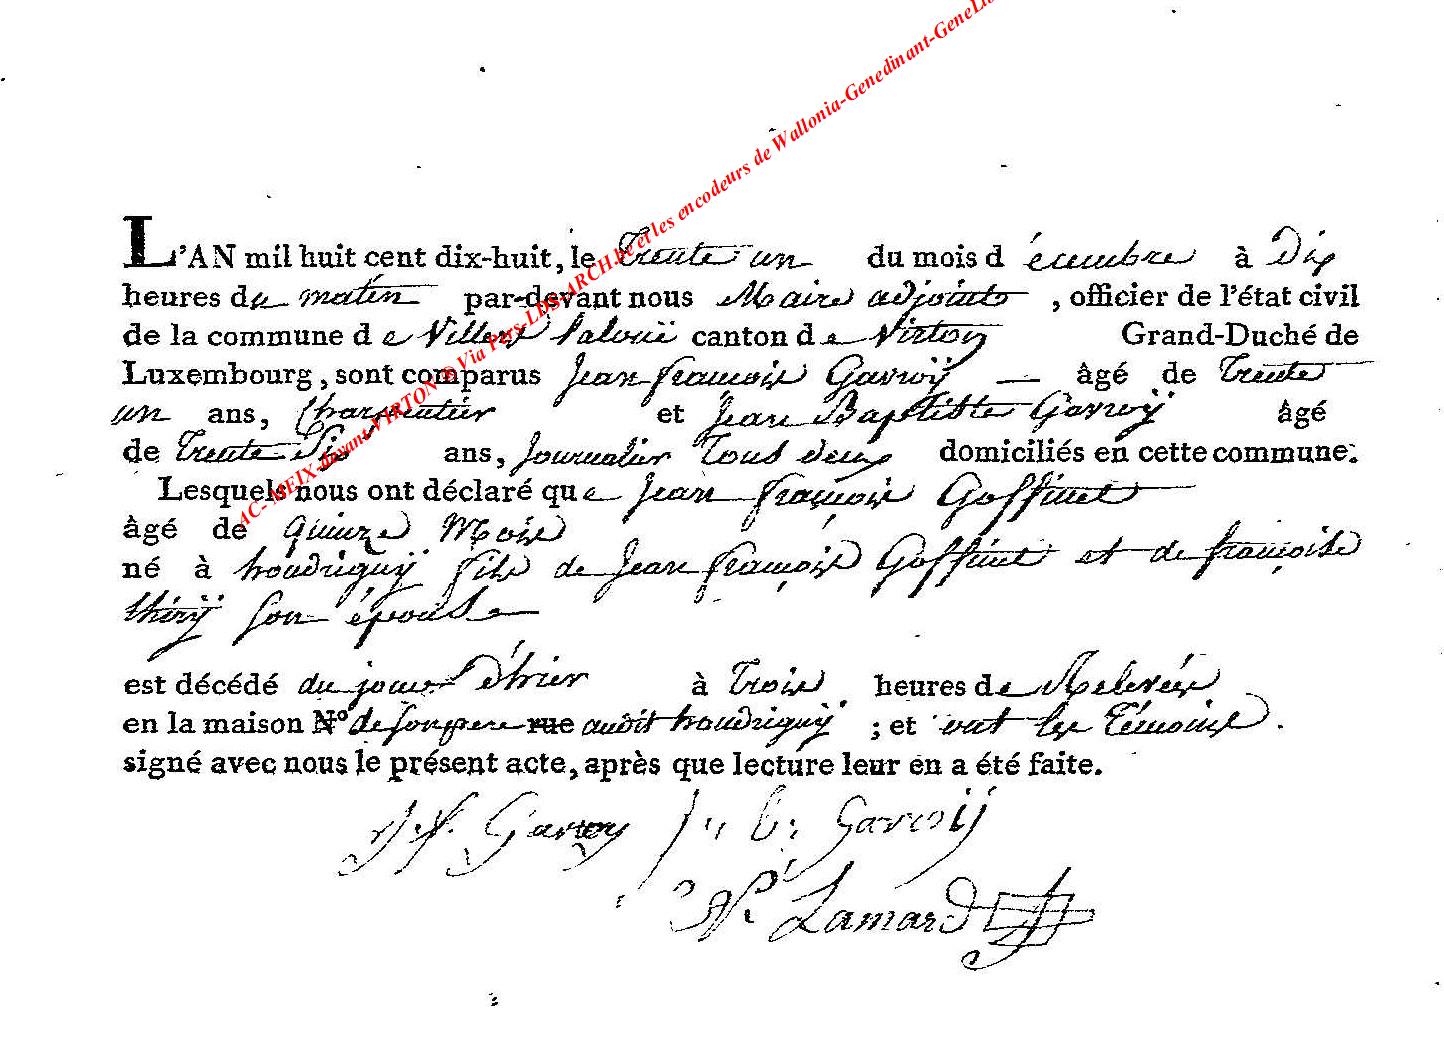 L'AN mil huit cent dix-huit, le Trente un du mois d écembre à Dix
heures du matin par-devant nous Maire adjoint, officier de l'état civil
de la commune de Villers laloue canton de Virton Grand-Duché de
Luxembourg, sont comparus Jean françois Gavroÿ — âgé de Trente
un ans, Charpentier et Jean Baptiste Gavroÿ âgé
de Trente Six ans, Journalier Tous deux domiciliés en cette commune.
Lesquels nous ont déclaré que Jean françois Goffinet
âgé de quinze Mois
né à houdrignÿ fils de Jean françois Goffinet et de françoise
thirÿ Son épouse
est décédé du jour d'hier à Trois heures de Relevée
en la maison N° de Son pere rue audit houdrignÿ ; et ont les Témoins
signé avec nous le présent acte, après que lecture leur en a été faite.
J. f. Gavroy J. b. Gavroÿ
Lamard
AC-MEIX-devant-VIRTON @ Via Pers-LDS-ARCH.be et les encodeurs de Wallonia-Genedinant-GeneLi